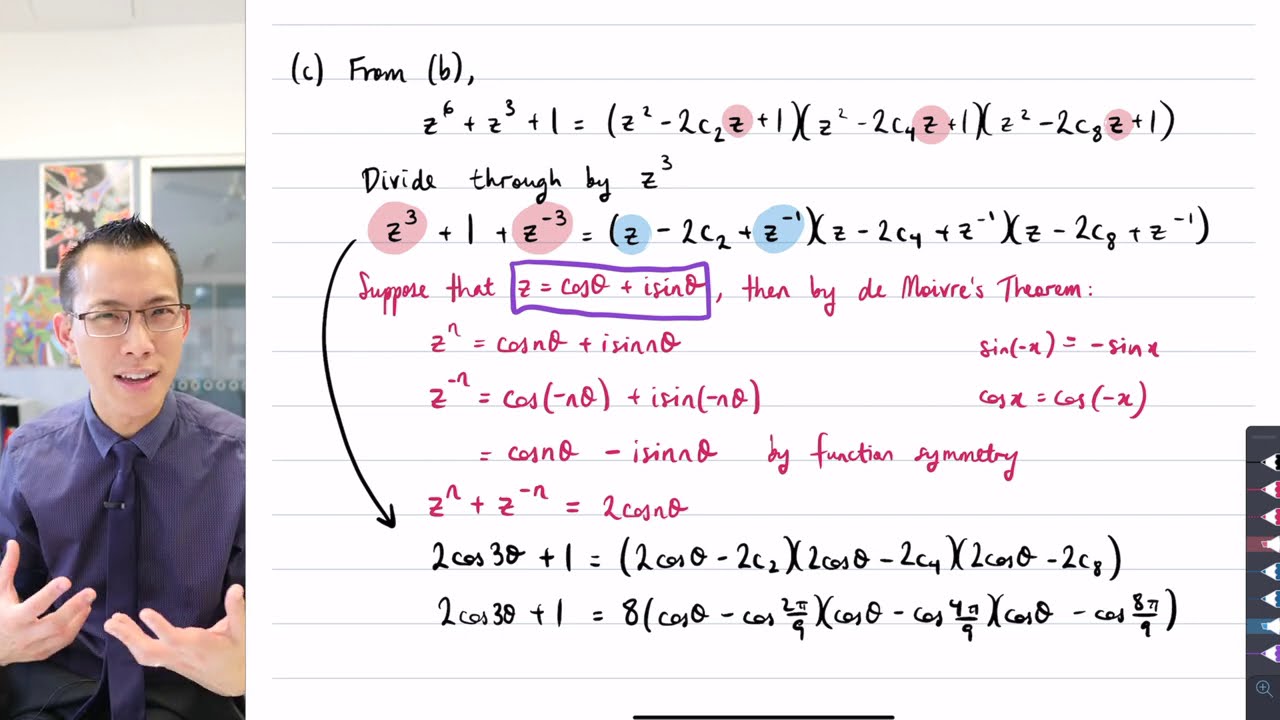 (c) From (b),
z⁶ + z³ + 1 = (z² - 2c₂z + 1)(z² - 2c₄z + 1)(z² - 2c₈z + 1)
Divide through by z³
z³ + 1 + z⁻³ = (z - 2c₂ + z⁻¹)(z - 2c₄ + z⁻¹)(z - 2c₈ + z⁻¹)
Suppose that z = cosθ + isinθ, then by de Moivre's Theorem:
zⁿ = cosnθ + isinnθ
sin(-x) = -sinx
z⁻ⁿ = cos(-nθ) + isin(-nθ)
cosx = cos(-x)
= cosnθ - isinnθ by function symmetry
zⁿ + z⁻ⁿ = 2cosnθ
2cos3θ + 1 = (2cosθ - 2c₂)(2cosθ - 2c₄)(2cosθ - 2c₈)
2cos3θ + 1 = 8(cosθ - cos 2π/9)(cosθ - cos 4π/9)(cosθ - cos 8π/9)